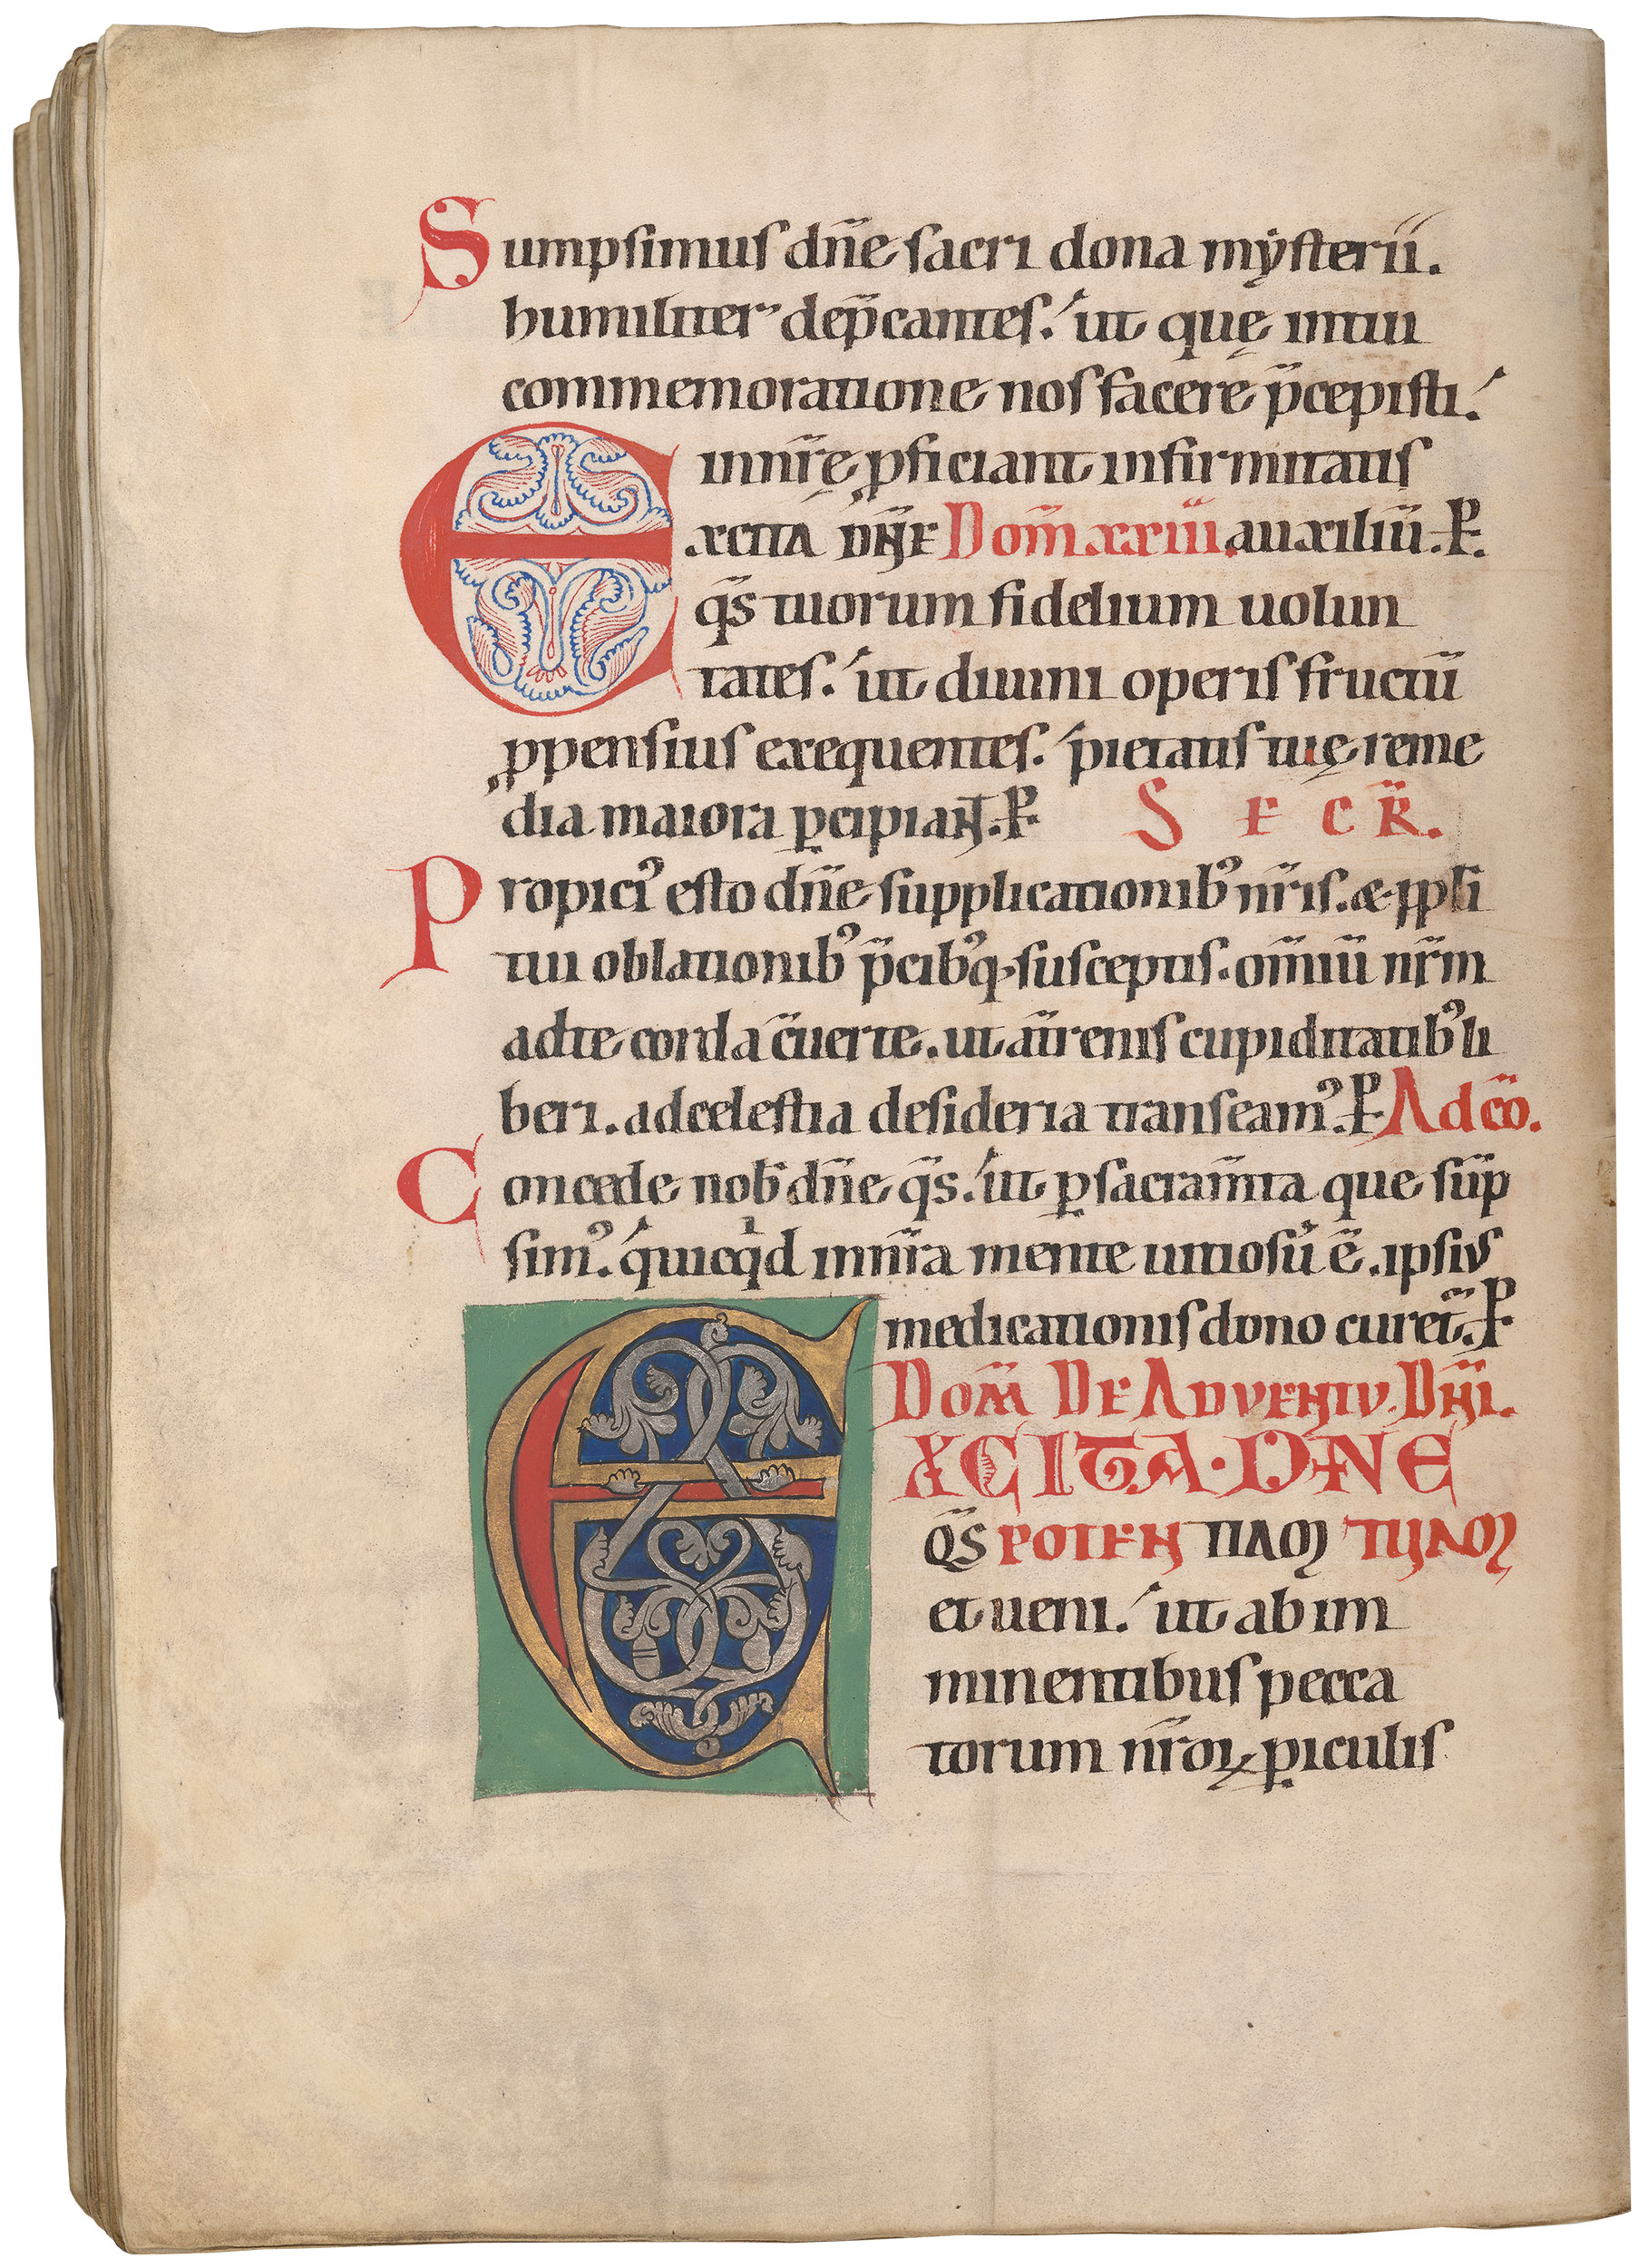 Sumpsimus dn̄e sacri dona mẏsterii.
humiliter dep̄cantes. ut quę intui
commemoratione nos facere p̄cepisti.
in nr̄ę ꝓficiant infirmitatis
Excita dn̄e Dom̄ xxiiii auxiliū. P.
q̄s tuorum fidelium uolun
tates. ut diuini operis fructū
ꝓpensius exequentes. pietatis tuę reme
dia maiora ꝑcipiant. P. SECR̄.
Propici᾽ esto dn̄e supplicationib᾽ nr̄is. & pp̄li
tui oblationib᾽ p̄cib᾽q; susceptis. om̄iū nr̄m
ad te corda c̄uerte. ut a t̄renis cupiditatib᾽ li
beri. ad celestia desideria transeam᾽. P. Ad cō.
Concede nob̄ dn̄e q̄s. ut ꝑ sacram̄ta que sūp
sim᾽. quicqͥd in nr̄a mente uitiosū ē. ipsius
medicationis dono curet᷑. P.
DOM̄ DE ADVENTV. DN̄I.
EXCITA. DN̄E
Q̄S POTENTIAM TUAM
et ueni. ut ab im
minentibus pecca
torum nr̄oꝝ ꝑiculis